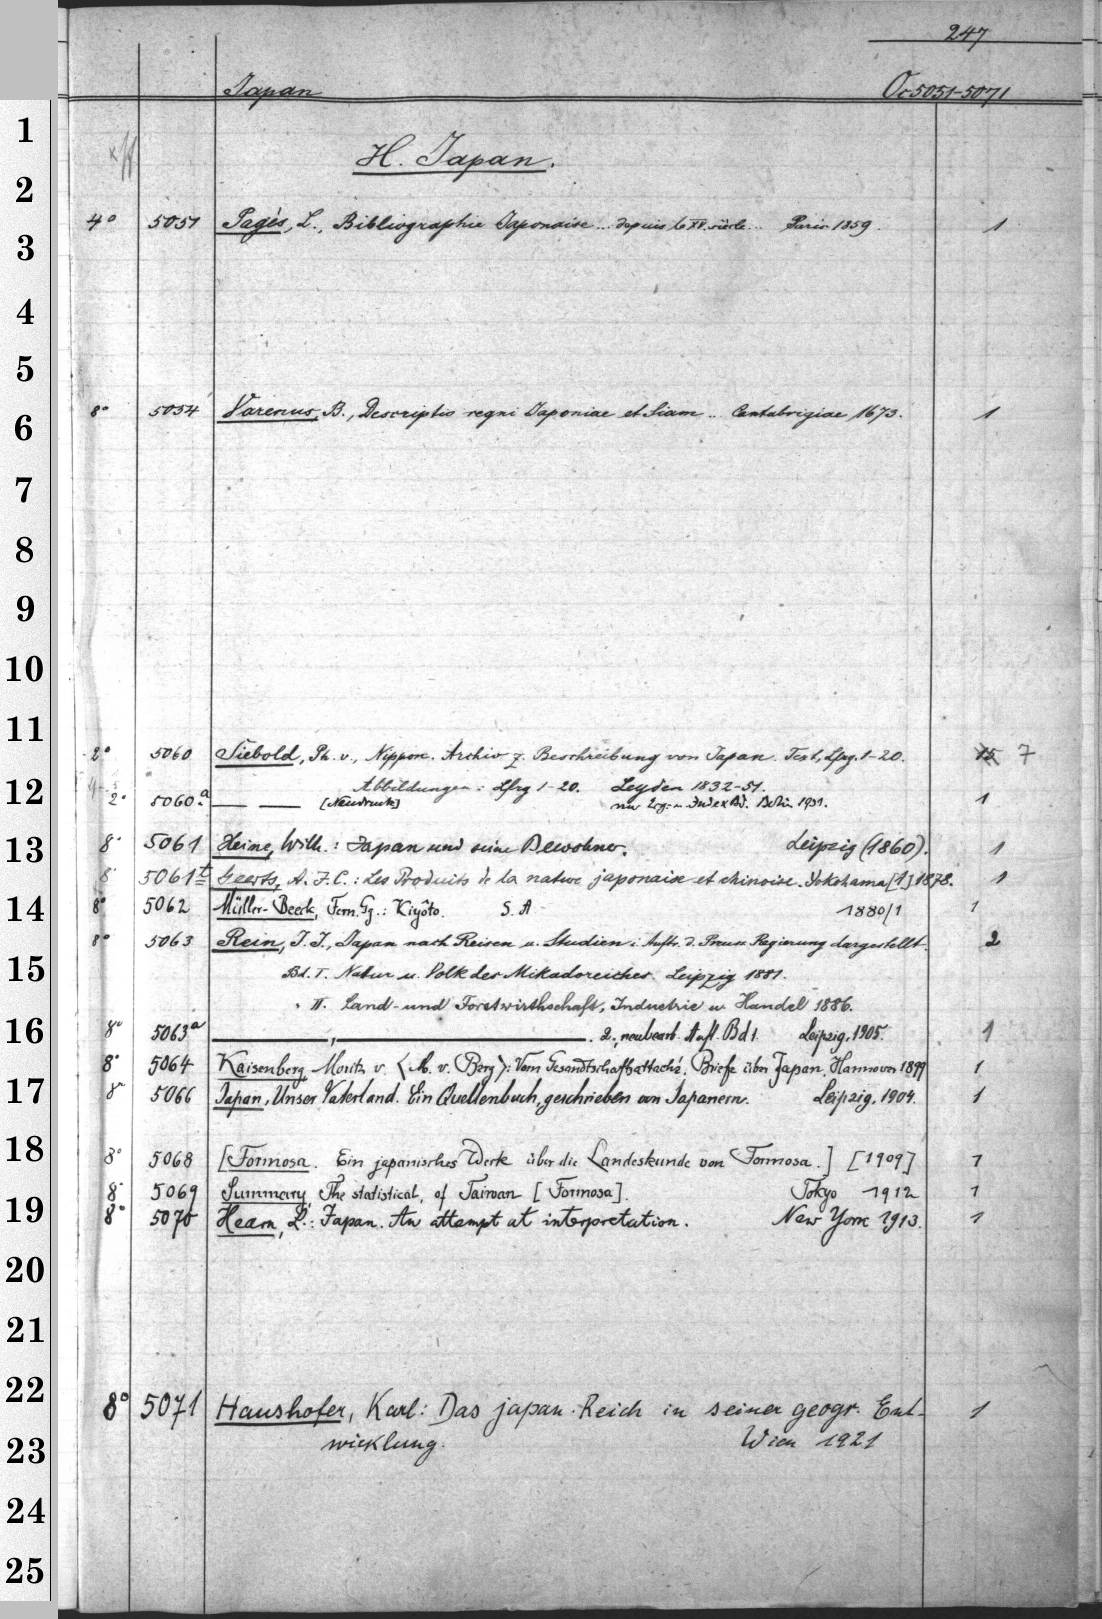 247
Japan Oc 5051-5071
1
H. Japan.
2
4° 5051 Pagès, L., Bibliographie Japonaise... depuis le XV. siècle... Paris 1859. 1
3
4
5
8° 5054 Varenius, B., Descriptio regni Japoniae et Siam.. Cantabrigiae 1673. 1
6
7
8
9
10
11
2° 5060 Siebold, Ph. v., Nippon. Archiv z. Beschreibung von Japan. Text, Lfrg. 1-20. 15 7
Abbildungen: Lfrg 1-20. Leyden 1832-51.
12
2° 5060.a — — [Neudruck] nur Erg.- u. Index Bd. Berlin 1931. 1
13 8° 5061 Heine, Wilh.: Japan und seine Bewohner. Leipzig (1860). 1
8° 5061t Geerts, A. J. C.: Les Produits de la nature japonaise et chinoise. Yokohama [1] 1878. 1
14 8° 5062 Müller-Beeck, Fern. Gg.: Kiyôto. S. A 1880/1 1
8° 5063 Rein, J. J., Japan nach Reisen u. Studien i. Auftr. d. Preuss Regierung dargestellt. 2
15 Bd. I. Natur u. Volk des Mikadoreiches. Leipzig 1881.
" II. Land- und Forstwirthschaft, Industrie u. Handel 1886.
16 8° 5063a —, —. 2., neubearb. Aufl. Bd 1. Leipzig, 1905. 1
8° 5064 Kaisenberg, Moritz v. <M. v. Berg>: Vom Gesandtschaftsattaché. Briefe über Japan. Hannover 1899 1
17 8° 5066 Japan, Unser Vaterland. Ein Quellenbuch, geschrieben von Japanern. Leipzig, 1904. 1
18
8° 5068 [Formosa. Ein japanisches Werk über die Landeskunde von Formosa.] [1909] 1
8° 5069 Summary, The statistical, of Taiwan [Formosa]. Tokyo 1912 1
19 8° 5070 Hearn, L.: Japan. An attempt at interpretation. New York 1913. 1
20
21
22
8° 5071 Haushofer, Karl: Das japan. Reich in seiner geogr. Ent- 1
23 wicklung. Wien 1921
24
25